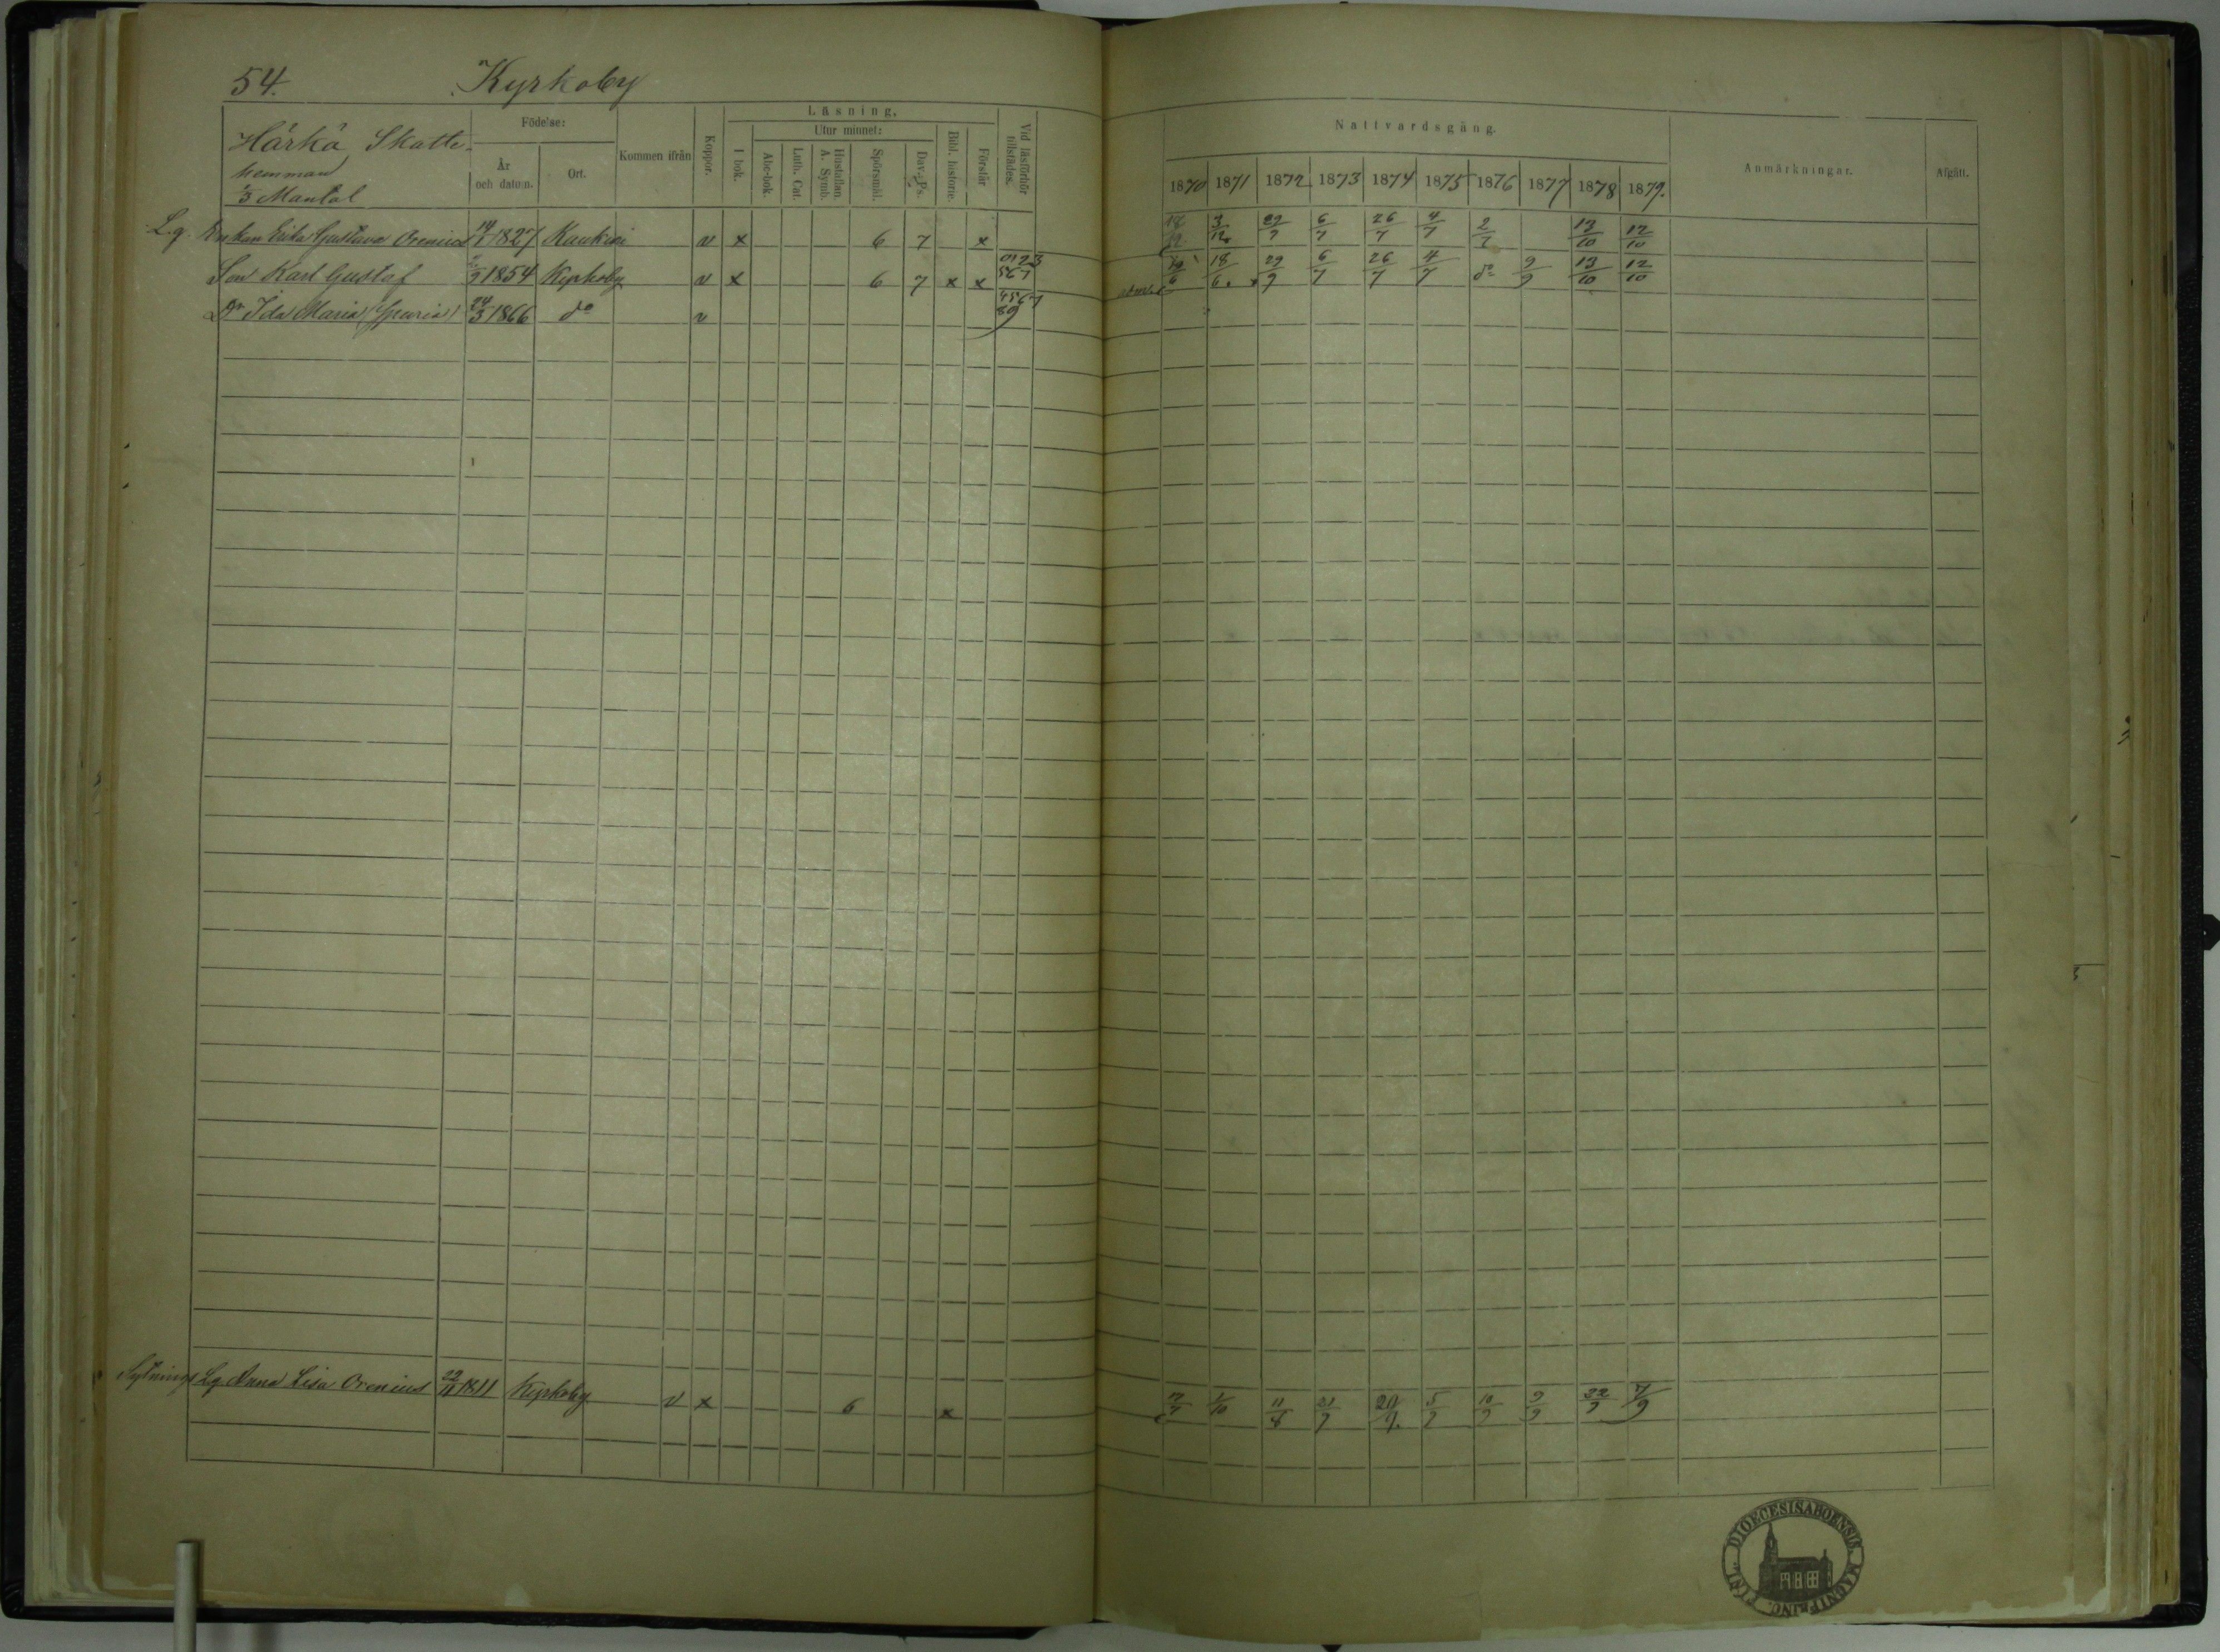 54. Kyrkoby
Härkä Skatte-
hemman
1/3 Mantal
Födelse:
År och datum.
Ort.
Kommen ifrån
Koppor.
Läsning.
I bok.
Utur minnet:
Abc-bok.
Luth. Cat.
Hustaflan. A. Symb.
Spörsmål.
Dav. Ps.
Bibl. historie.
Förstår
Vid läsförhör tillstädes.
Nattvardsgång.
1870 1871 1872 1873 1874 1875 1876 1877 1878 1879.
Anmärkningar.
Afgått.
L.g. Enkan Erika Gustava Orenius 1827 v x 6 7 x 3/12 29/9 6/7 26/7 4/7 2/7 13/10 12/10
Son Karl Gustaf 1854 Kyrkoby v x 6 7 x x 0123 567 18/6 29/9 6/7 26/7 4/7 do 9/9 13/10 12/10
Dr Ida Maria (spuria) 24/3 1866 do v 4567 89
Sytnings Lg. Anna Lisa Orenius 22/11 1811 Kyrkoby v x 6 x 1/10 11/8 21/7 20/9 5/9 10/9 9/9 22/9 7/9
DIOECESIS ABOENSIS. MAGNI PRINC. FINL.